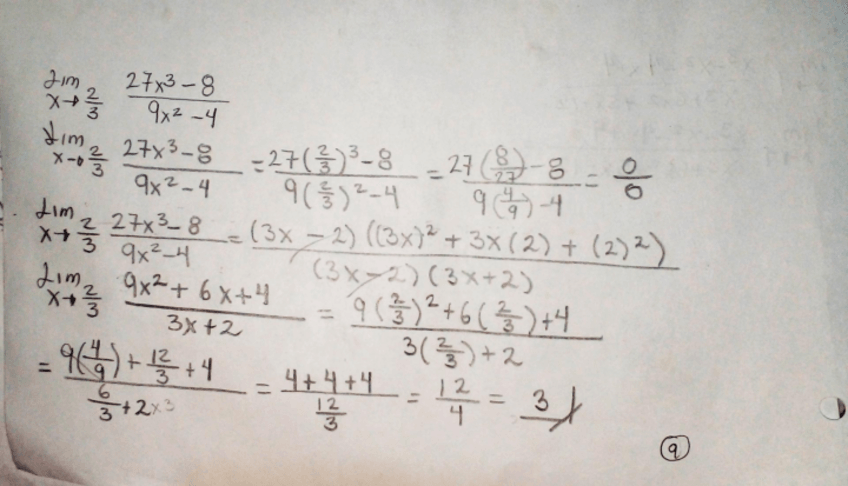 lim x→2/3 (27x³ - 8)/(9x² - 4)
lim x→2/3 (27x³ - 8)/(9x² - 4) = (27(2/3)³ - 8)/(9(2/3)² - 4) = (27(8/27) - 8)/(9(4/9) - 4) = 0/0
lim x→2/3 (27x³ - 8)/(9x² - 4) = ((3x - 2)((3x)² + 3x(2) + (2)²))/((3x - 2)(3x + 2))
lim x→2/3 (9x² + 6x + 4)/(3x + 2) = (9(2/3)² + 6(2/3) + 4)/(3(2/3) + 2)
= (9(4/9) + 12/3 + 4)/(6/3 + 2x3) = (4 + 4 + 4)/(12/3) = 12/4 = 3
9